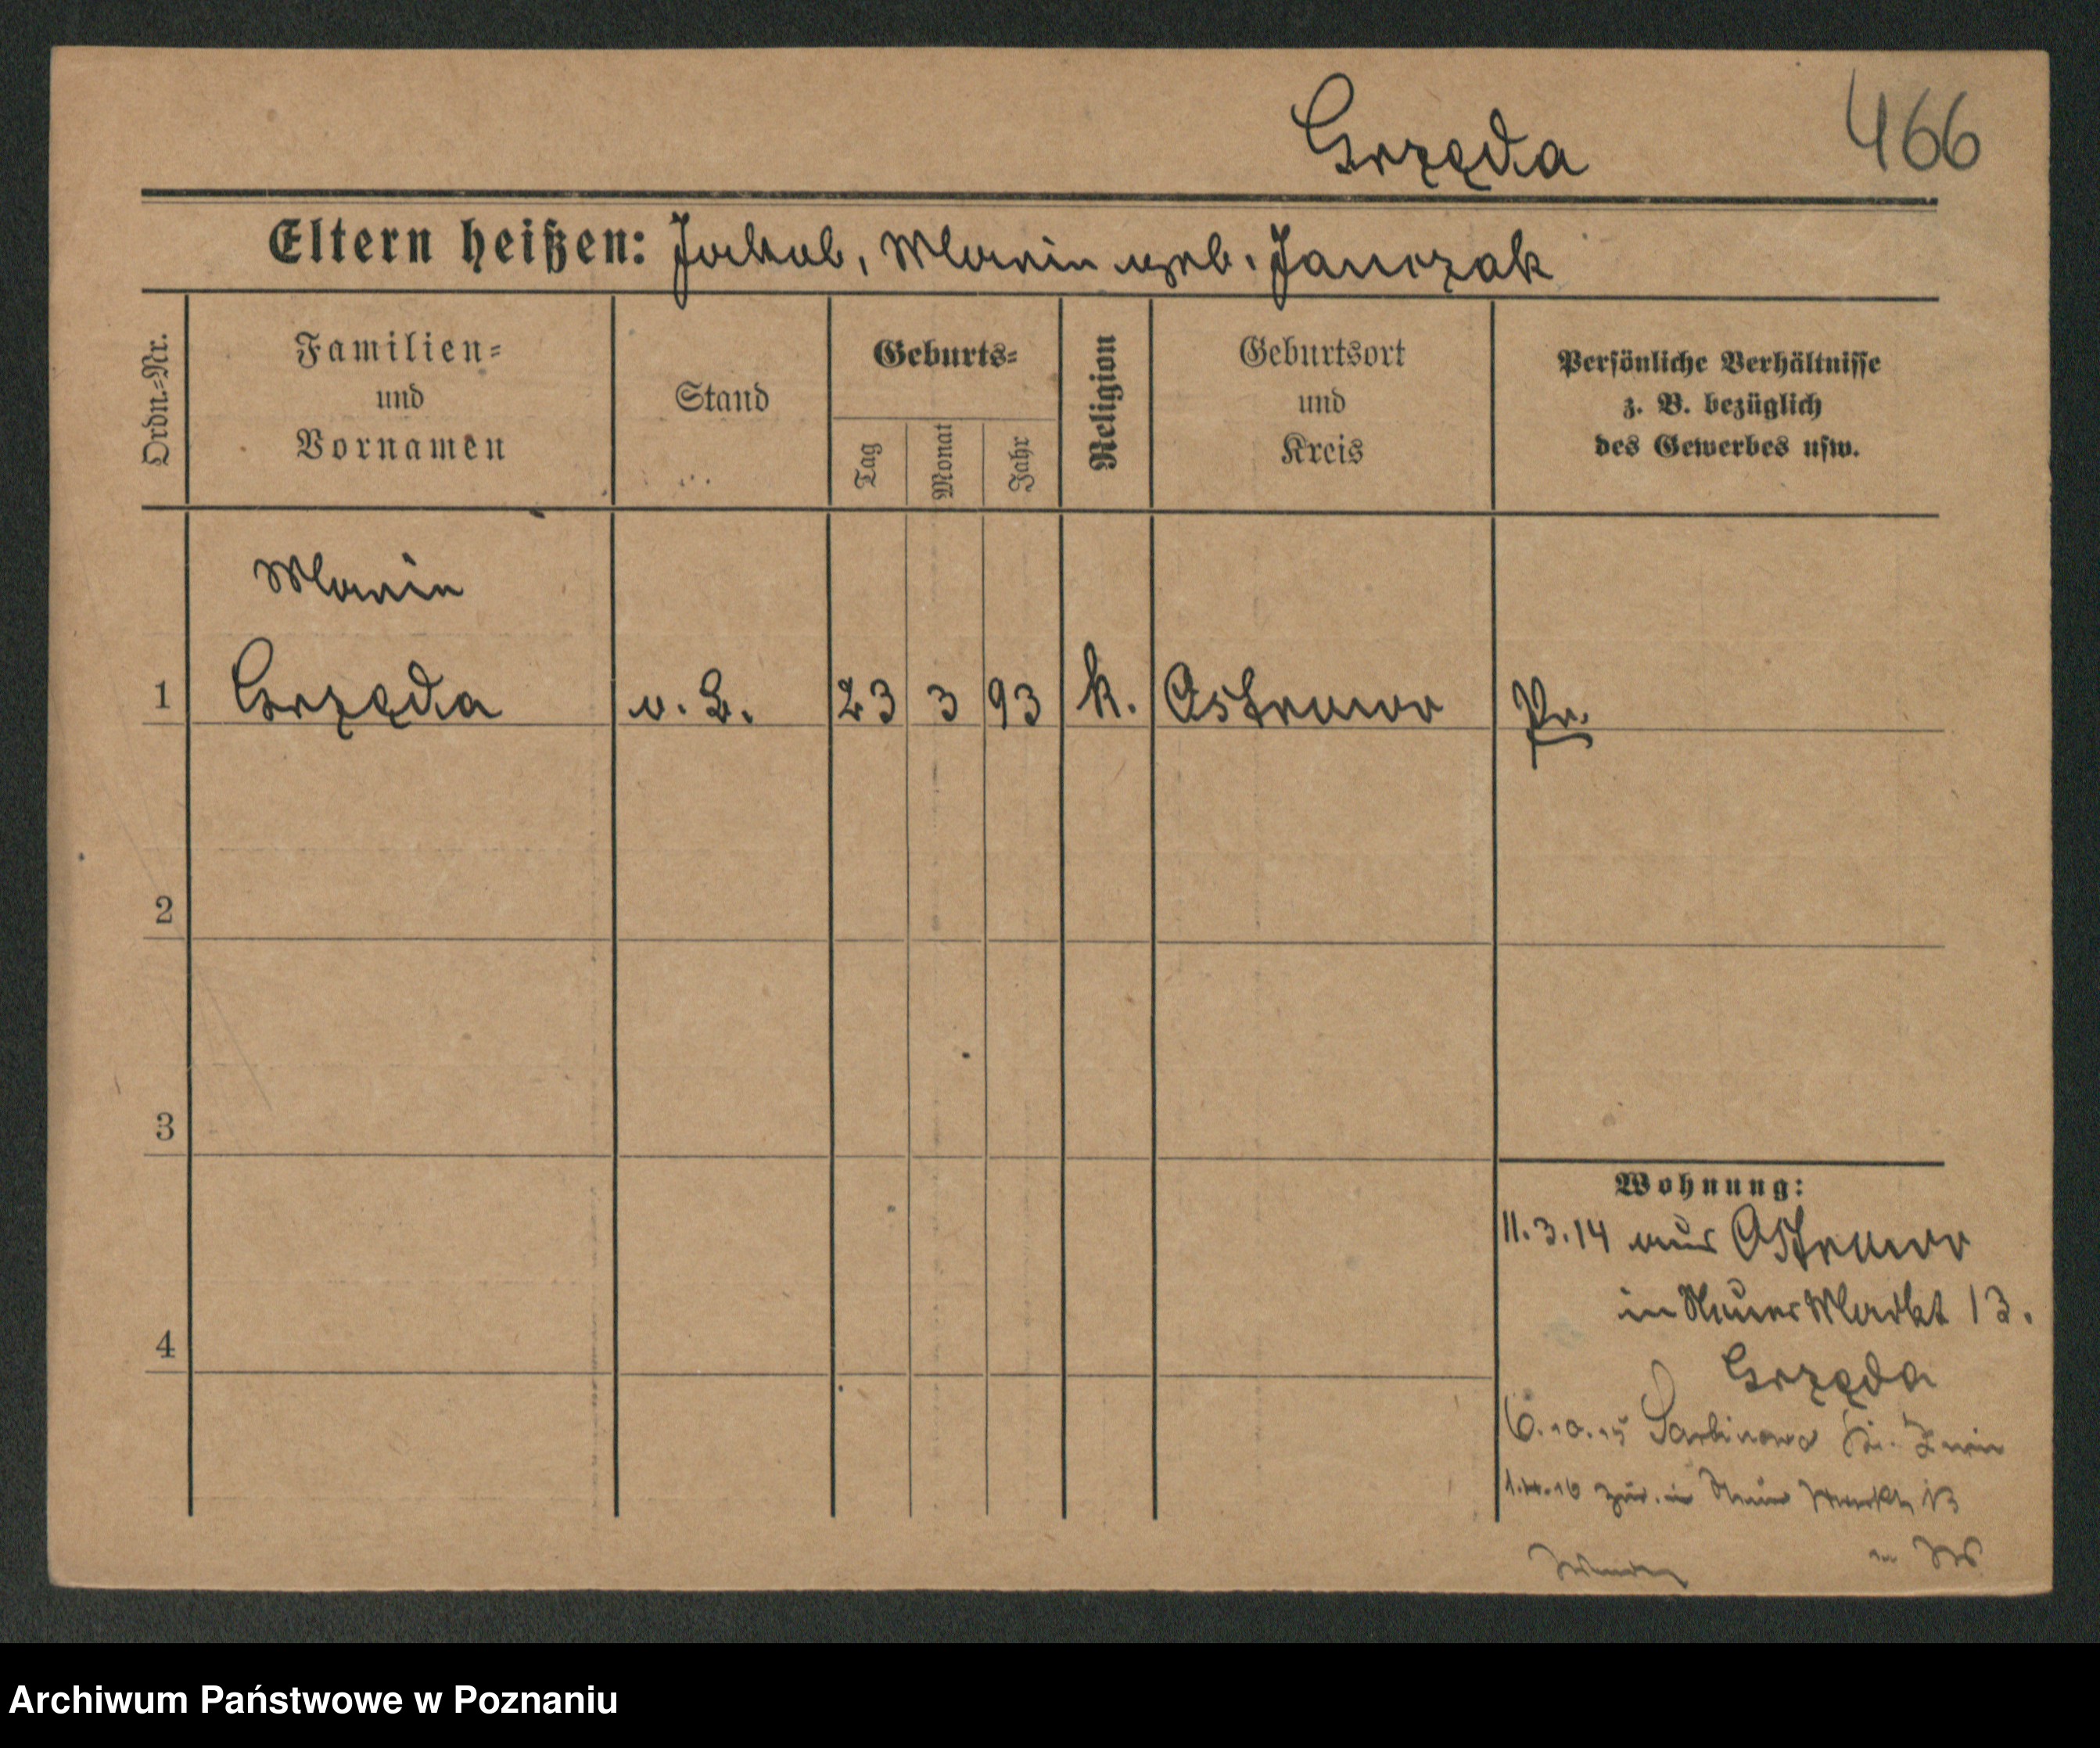 Grzęda 466
Eltern heißen: Jakob, Marie geb. Janczak
Ordn.-Nr.
Familien-
und
Vornamen
Stand
Geburts-
Tag
Monat
Jahr
Religion
Geburtsort
und
Kreis
Persönliche Verhältnisse
z. B. bezüglich
des Gewerbes usw.
Marie
1 Grzęda o. B. 23 3 93 k. Ostrowo Pr.
2
3
Wohnung:
11.3.14 aus Ostrowo
in Neuer Markt 13.
4
Grzęda
6.10.15 Sarbinowo Kr. Znin
1.4.16 zur. in Neuer Markt 13